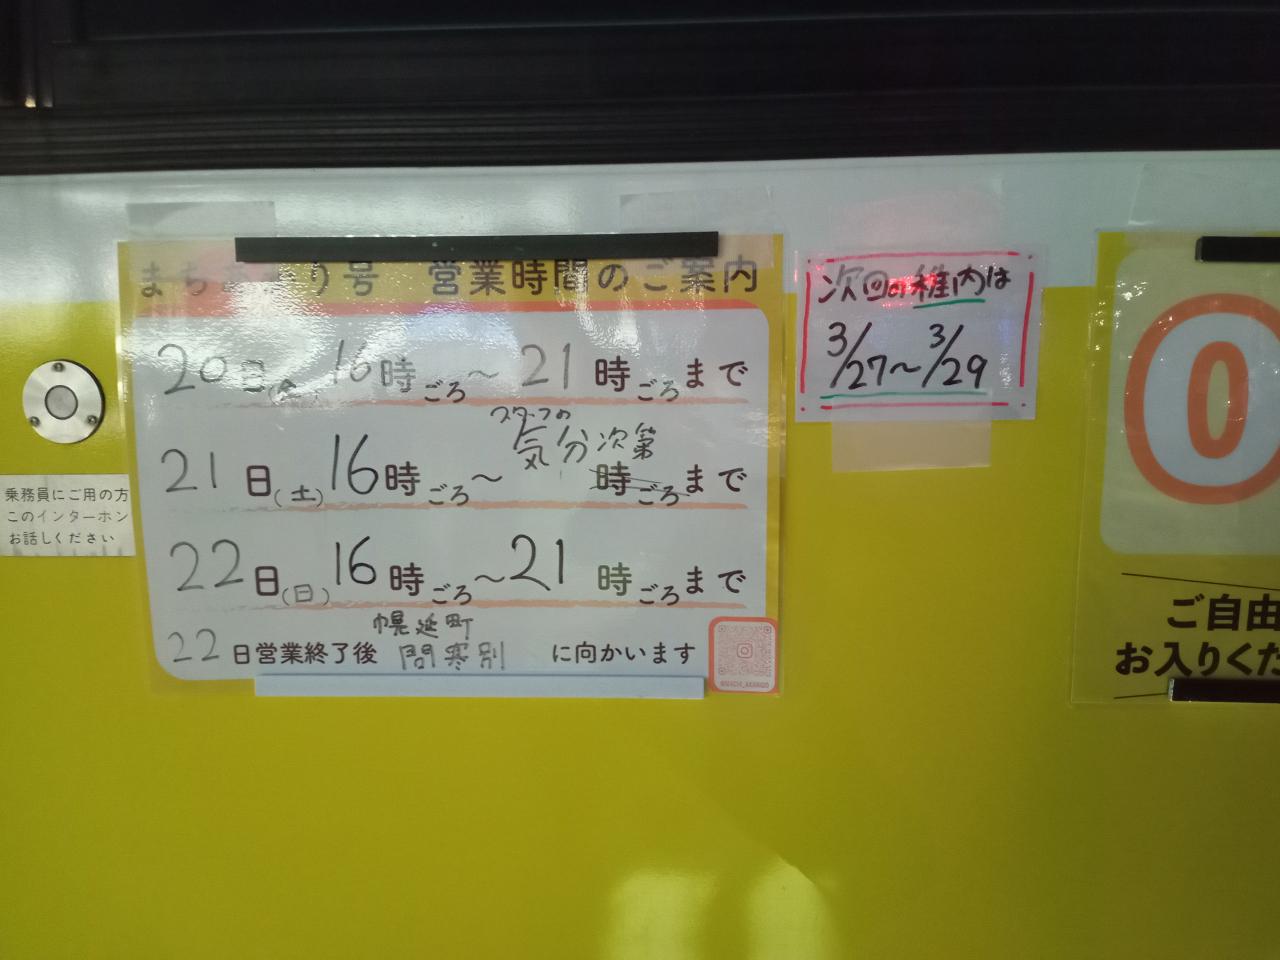 まちあかり号 営業時間のご案内
20日(金)16時ごろ～21時ごろまで
スタッフの
気分次第
21日(土)16時ごろ～時ごろまで
22日(日)16時ごろ～21時ごろまで
幌延町
22日営業終了後 問寒別 に向かいます
@MACHI_AKARIGO
次回の稚内は
3/27～3/29
乗務員にご用の方
このインターホン
お話しください
0
ご自由
お入りくだ